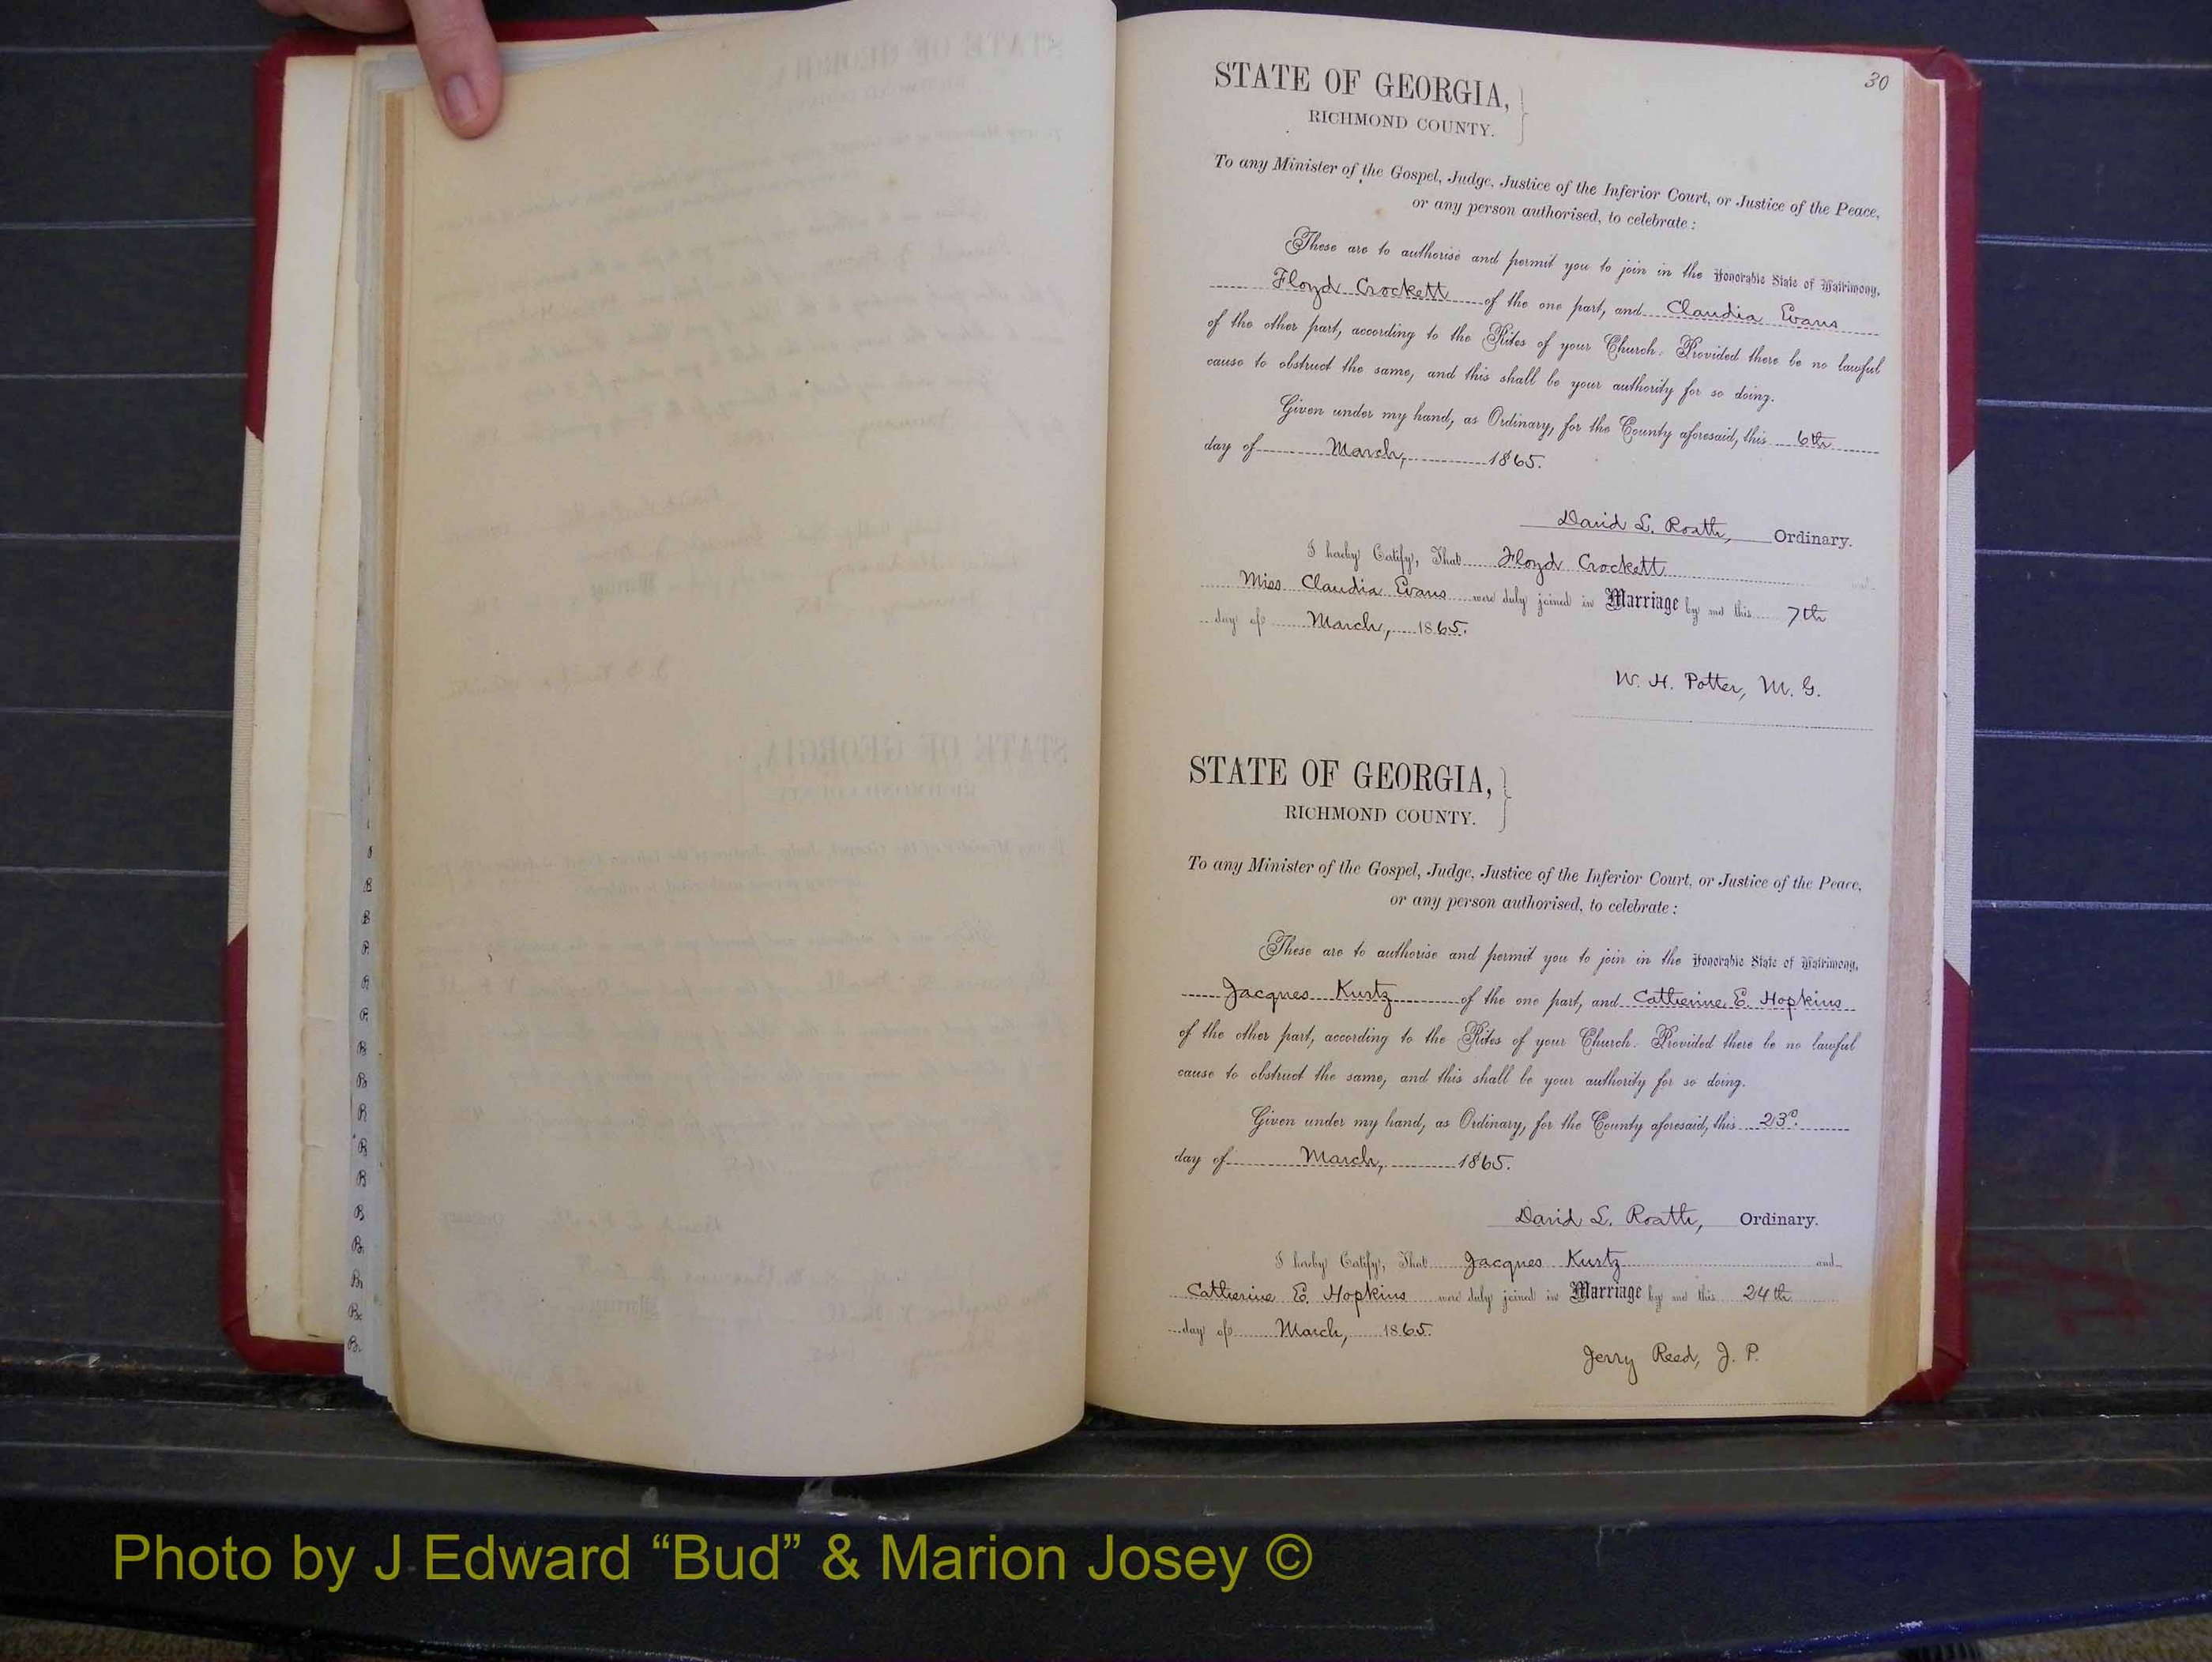 30
STATE OF GEORGIA,
RICHMOND COUNTY.
To any Minister of the Gospel, Judge, Justice of the Inferior Court, or Justice of the Peace,
or any person authorised, to celebrate:
These are to authorise and permit you to join in the Honorable State of Matrimony,
Floyd Crockett of the one part, and Claudia Evans
of the other part, according to the Rites of your Church. Provided there be no lawful
cause to obstruct the same, and this shall be your authority for so doing.
Given under my hand, as Ordinary, for the County aforesaid, this 6th
day of March, 1865.
David L. Roath, Ordinary.
I hereby Certify, That Floyd Crockett and
Miss Claudia Evans were duly joined in Marriage by me this 7th
day of March, 1865.
W. H. Potter, M. G.
STATE OF GEORGIA,
RICHMOND COUNTY.
To any Minister of the Gospel, Judge, Justice of the Inferior Court, or Justice of the Peace,
or any person authorised, to celebrate:
These are to authorise and permit you to join in the Honorable State of Matrimony,
Jacques Kurtz of the one part, and Catherine E. Hopkins
of the other part, according to the Rites of your Church. Provided there be no lawful
cause to obstruct the same, and this shall be your authority for so doing.
Given under my hand, as Ordinary, for the County aforesaid, this 23d.
day of March, 1865.
David L. Roath, Ordinary.
I hereby Certify, That Jacques Kurtz and
Catherine E. Hopkins were duly joined in Marriage by me this 24th
day of March, 1865.
Jerry Reed, J. P.
Photo by J Edward “Bud” & Marion Josey ©